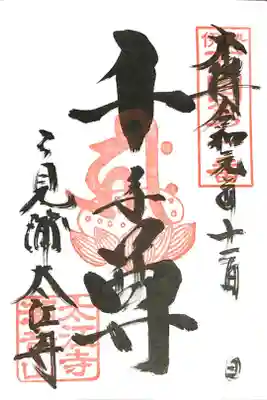 奉拝令和元年十一月 日
千手尊
二見浦太江寺
太江寺